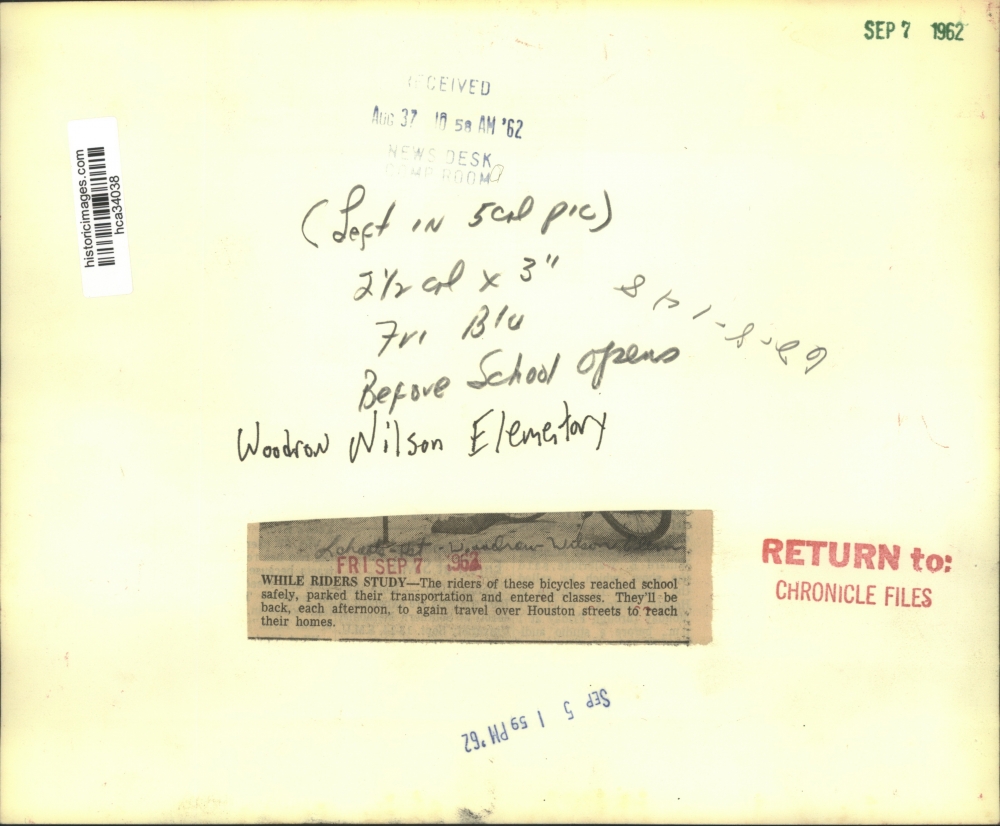 SEP 7 1962
RECEIVED
AUG 37 10 58 AM '62
NEWS DESK
COMP ROOM
historicimages.com
hca34038
(Left in 5 col pic)
2 1/2 col x 3"
Fri Blu
Before School Opens
Woodrow Wilson Elementory
FRI SEP 7 1962
WHILE RIDERS STUDY—The riders of these bicycles reached school
safely, parked their transportation and entered classes. They'll be
back, each afternoon, to again travel over Houston streets to reach
their homes.
RETURN to:
CHRONICLE FILES
SEP 5 1 59 PM '62